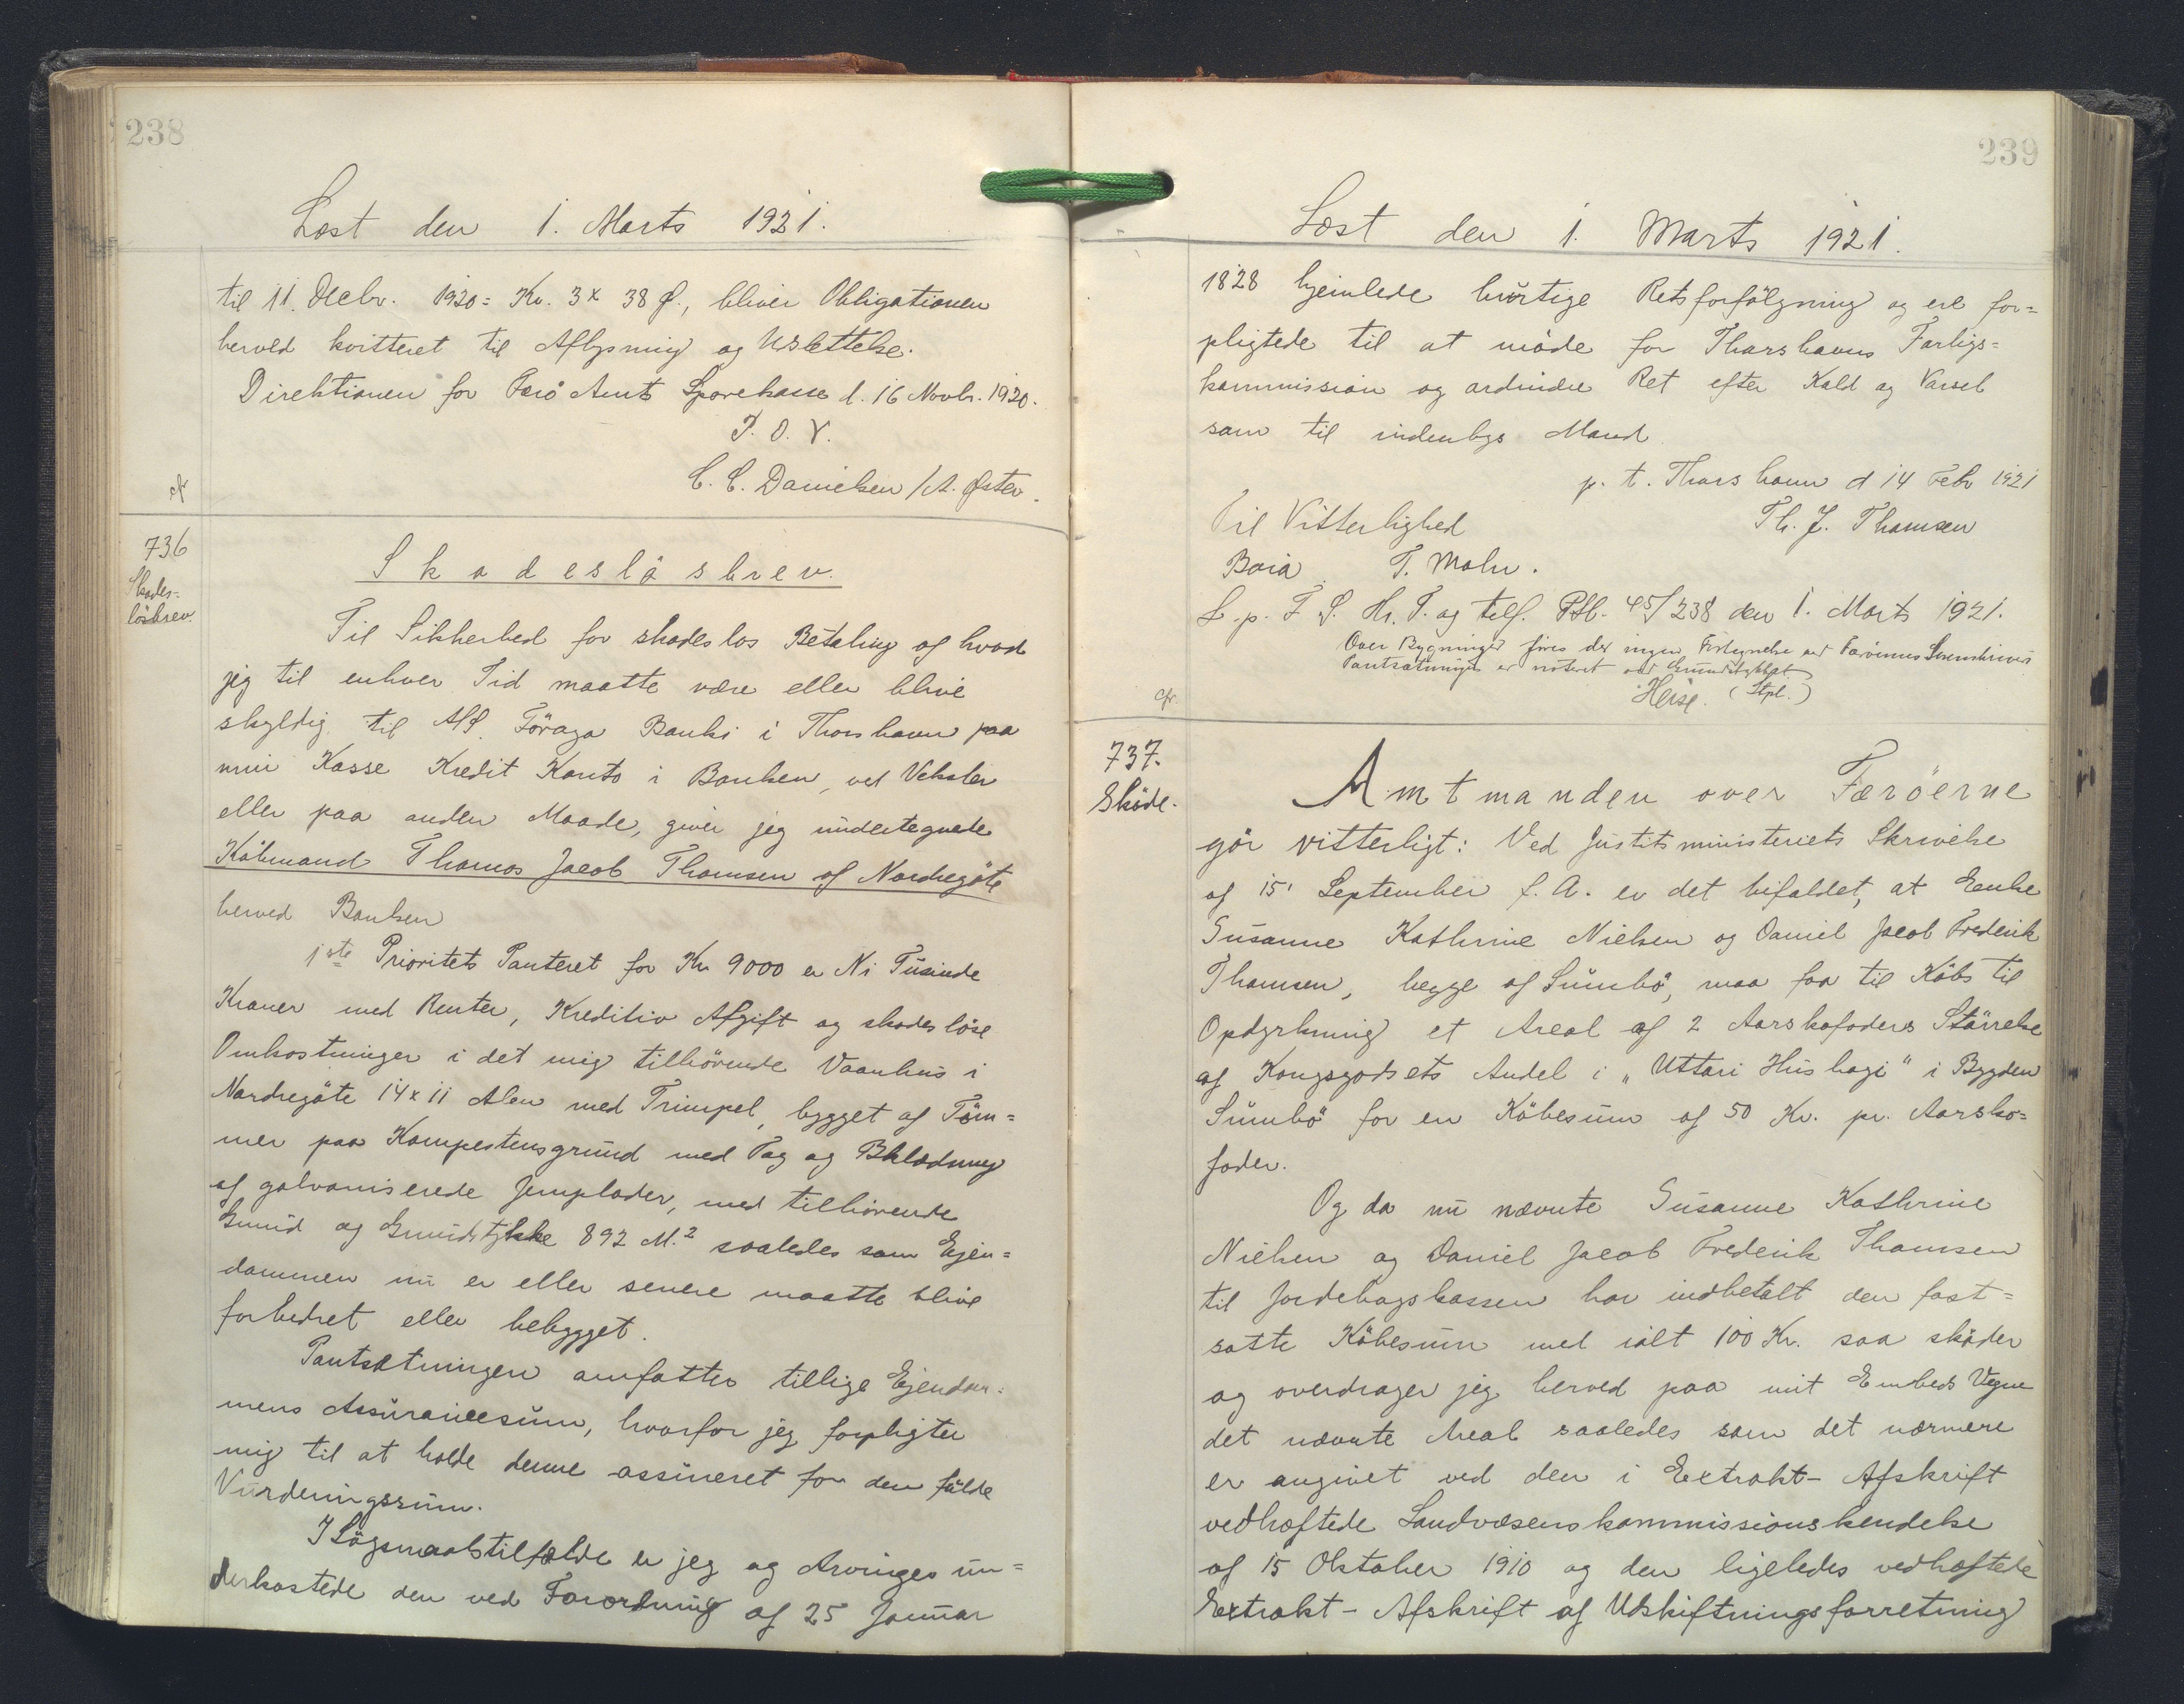 238
Læst den 1. Marts 1921.
til 11. Decbr. 1920 = Kr. 3 x 38 Ø., bliver Obligationen
herved kvitteret til Aflysning og Udslettelse.
Direktionen for Færø Amts Sparekasse d. 16 Novbr. 1920.
P. D. V.
C. C. Danielsen / A. Øster.
cfr
736
Skades-
løsbrev.
Skadesløsbrev.
Til Sikkerhed for skadesløs Betaling af hvad
jeg til enhver Tid maatte være eller blive
skyldig til A/S. Föroya Banki i Thorshavn paa
min Kasse Kredit Konto i Banken, ved Veksler
eller paa anden Maade, giver jeg undertegnede
Købmand Thomas Jacob Thomsen af Nordregöte
herved Banken
1ste Prioritets Panteret for Kr 9000 er Ni Tusinde
Kroner med Renter, Kreditiv Afgift og skadesløse
Omkostninger i det mig tilhørende Vaanhus i
Nordregöte 14 x 11 Alen med Trimpel, bygget af Töm=
mer paa Kampestensgrund med Tag og Bklædning
af galvaniserede Jernplader, med tilhørende
Grund og Grundstykke 892 M.² saaledes som Ejen=
dommen nu er eller senere maatte blive
forbedret eller bebygget.
Pantsætningen omfatter tillige Ejendom=
mens Assurancesum, hvorfor jeg forpligter
mig til at holde denne assureret for den fulde
Vurderingssum.
I Søgsmaalstilfælde er jeg og Arvinger un=
derkastede den ved Forordning af 25 Januar
239
Læst den 1. Marts 1921.
1828 hjemlede hurtige Retsforfölgning og ere for=
pligtede til at möde for Thorshavns Forligs=
kommission og ordinære Ret efter Kald og Varsel
som til indenbys Mand
p. t. Thorshavn d 14 Febr 1921
Til Vitterlighed
Th. J. Thomsen
T. Mohr.
L. p. F. S. Hr. T. og tilf. Ptb. 45/238 den 1. Marts 1921.
Over Bygninger føres der ingen Fortegnelse ved Færøernes Sorenskriveri
Pantsætningen er noteret ved Grundstykket
Heise. (Stpl.)
cfr.
737.
Sköde.
Amtmanden over Færöerne
gör vitterligt: Ved Justitsministeriets Skrivelse
af 15' September f. A. er det bifaldet, at Enke
Susanne Kathrine Nielsen og Daniel Jacob Frederik
Thomsen, begge af Sumbö, maa faa til Købs til
Opdyrkning et Areal af 2 Aarskofoders Størrelse
af Kongsgodsets Andel i „Uttari Húshagi" i Bygden
Sumbö for en Købesum af 50 Kr. pr. Aarsko=
foder.
Og da nu nævnte Susanne Kathrine
Nielsen og Daniel Jacob Frederik Thomsen
til Jordebogskassen har indbetalt den fast=
satte Købesum med ialt 100 Kr. saa sköder
og overdrager jeg herved paa mit Embeds Vegne
det nævnte Areal saaledes som det nærmere
er angivet ved den i Extrakt-Afskrift
vedhæftede Landvæsenskommissionskendelse
af 15 Oktober 1910 og den ligeledes vedhæftede
Extrakt-Afskrift af Udskiftningsforretning